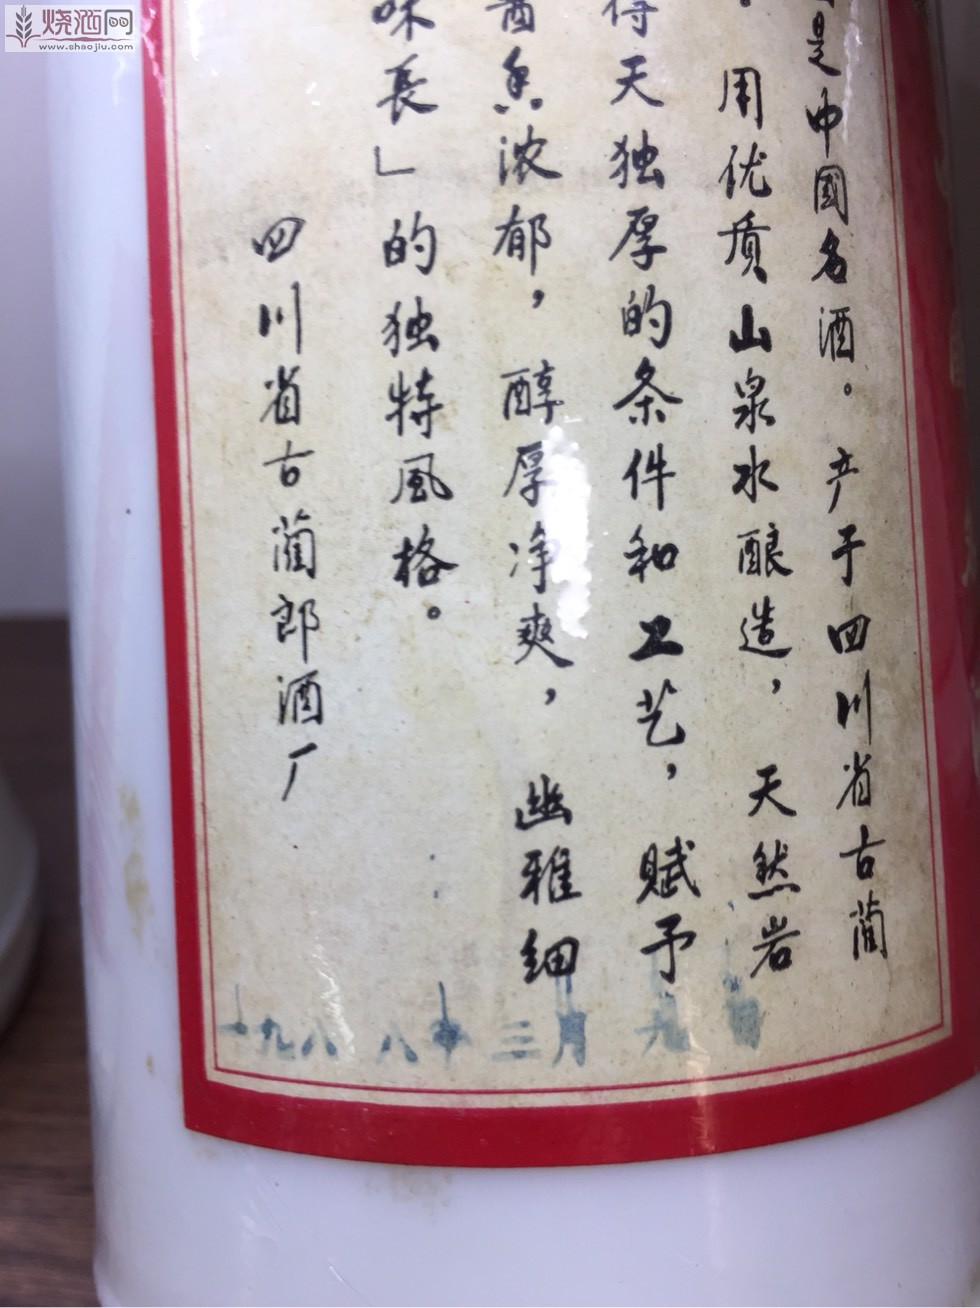 烧酒网
www.shaojiu.com
是中國名酒。产于四川省古蔺
用优质山泉水酿造，天然岩
天独厚的条件和工艺，赋予
香浓郁，醇厚净爽，幽雅细
味長」的独特風格。
四川省古蔺郎酒厂
一九八八年三月九日